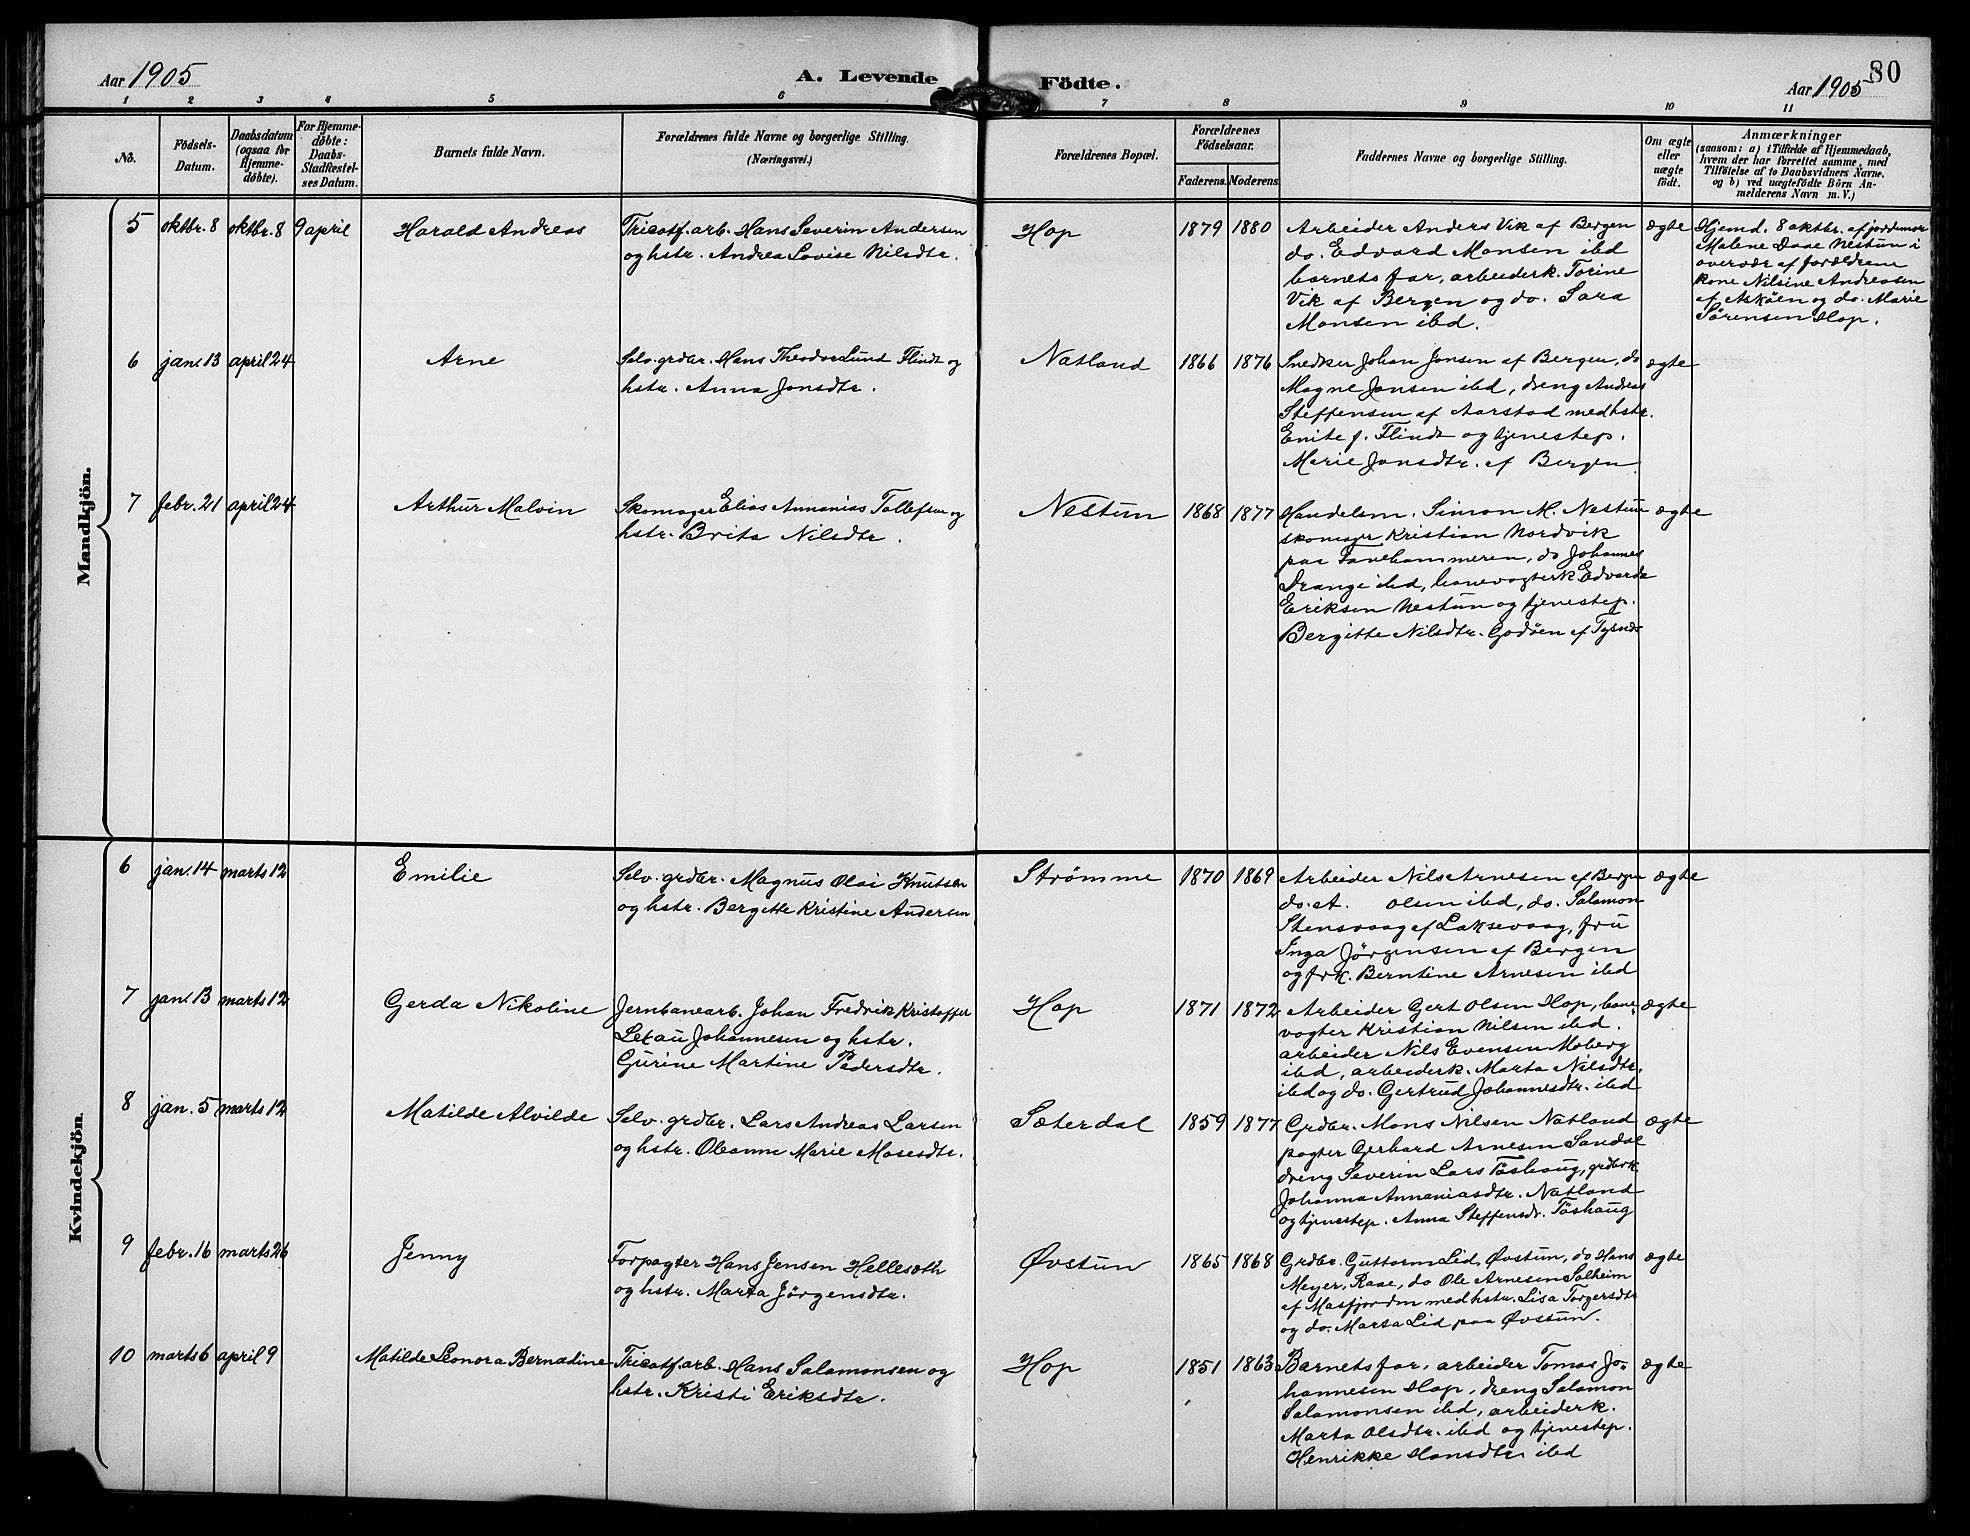 Aar 1905
A. Levende Födte.
Aar 1905
80
1 2 3 4 5 6 7 8 9 10 11
No.
Födsels-
Datum.
Daabsdatum
(ogsaa for
Hjemme-
döbte).
For Hjemme-
döbte:
Daabs-
Stadfæstel-
ses Datum.
Barnets fulde Navn.
Forældrenes fulde Navne og borgerlige Stilling.
(Næringsvei.)
Forældrenes Bopæl.
Forældrenes
Födselsaar.
Faderens.
Moderens.
Faddernes Navne og borgerlige Stilling.
Om ægte
eller
uægte
födt.
Anmærkninger
(saasom: a) i Tilfælde af Hjemmedaab,
hvem der har forrettet samme, med
Tilföielse af to Daabsvidners Navne.
og b) ved uægtefödte Börn An-
melderens Navn m. V.)
Mandkjön.
5
oktbr. 8
oktbr. 8
9 april
Harald Andreas
Tricotf. arb. Hans Severin Andersen
og hstr. Andrea Lovise Nilsdtr.
Hop
1879
1880
Arbeider Anders Vik af Bergen
do. Edvard Monsen ibd
barnets far, arbeiderk. Torine
Vik af Bergen og do. Sara
Monsen ibd.
ægte
Hjemd. 8 oktbr. af jordemor
Malene Daae Nestun i
overvær af forældrene
kone Nilsine Andreasen
af Askøen og do. Marie
Sørensen Hop.
6
jan. 13
april 24
Arne
Selv. grdbr. Hans Theodor Lund Flindt og
hstr. Anna Jonsdtr.
Natland
1866
1876
Snedker Johan Jonsen af Bergen, do
Magne Jansen ibd, dreng Andreas
Steffensen af Aarstad med hstr.
Enite f. Flindt og tjenestep.
Marie Jonsdtr. af Bergen
ægte
7
febr. 21
april 24
Arthur Malvin
Skomager Elias Annanias Tollefsen og
hstr. Brita Nilsdtr.
Nestun
1868
1877
Handelsm. Simon M. Nestun
skomager Kristian Nordvik
paa Fanehammeren, do Johannes
Drange ibd, banevogterk Edvarda
Eriksen Nestun og tjenestep.
Bergitte Nilsdtr. Godøen af Tysnes
ægte
Kvindekjön.
6
jan. 14
marts 12
Emilie
Selv. grdbr. Magnus Olai Knutsen
og hstr. Bergitte Kristine Andersen
Strømme
1870
1869
Arbeider Nils Arnesen af Bergen
do. A. Olsen ibd, do. Salamon
Stensvaag af Laksevaag, fru
Inga Jørgensen af Bergen
og frk. Berntine Arnesen ibd
ægte
7
jan. 13
marts 12
Gerda Nikoline
Jernbanearb. Johan Fredrik Kristoffer
Letau Johannesen og hstr.
Gurine Martine Pedersdtr.
Hop
1871
1872
Arbeider Gert Olsen Hop, bane-
vogter Kristian Nilsen ibd.
arbeider Nils Evensen Moberg
ibd, arbeiderk. Marta Nilsdtr.
ibd og do. Gertrud Johannesdtr. ibd
ægte
8
jan. 5
marts 12
Matilde Alvilde
Selv. grdbr. Lars Andreas Larsen
og hstr. Oleanne Marie Mosesdtr.
Sæterdal
1859
1877
Grdbr. Mons Nilsen Natland
pagter Gerhard Arnesen Sandal
dreng Severin Lars Tøshaug, grdbrk
Johanna Annaniasdtr. Natland
og tjenestep. Anna Steffensdr. Tøshaug
ægte
9
febr. 16
marts 26
Jenny
Forpagter Hans Jensen Hellesøth
og hstr. Marta Jørgensdtr.
Øvstun
1865
1868
Grdbr. Guttorm Lid, Øvstun, do Hans
Meyer, Raae, do Ole Arnesen Solheim
af Masfjorden med hstr. Lisa Torgersdtr
og do. Marta Lid paa Øvstun.
ægte
10
marts 6
april 9
Matilde Leonora Bernadine
Tricotf. arb. Hans Salamonsen og
hstr. Kristi Eriksdtr.
Hop
1851
1863
Barnets far, arbeider Tomas Jo-
hannesen Hop, dreng Salamon
Salamonsen ibd, arbeiderk.
Marta Olsdtr. ibd og tjenestep.
Henrikke Hansdtr ibd
ægte